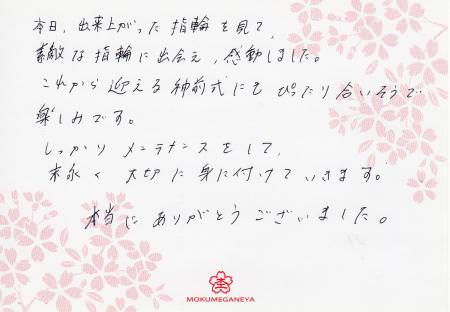 本日、出来上がった指輪を見て、
素敵な指輪に出会え、感動しました。
これから迎える神前式にもぴったり合いそうで
楽しみです。
しっかりメンテナンスをして、
末永く大切に身に付けていきます。
本当にありがとうございました。
MOKUMEGANEYA